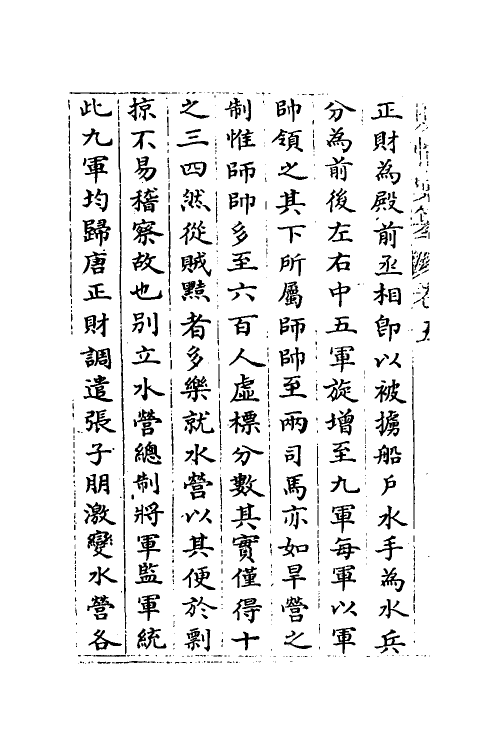 正財為殿前丞相卽以被擄船戶水手為水兵
分為前後左右中五軍旋增至九軍每軍以軍
帥領之其下所屬師帥至兩司馬亦如旱營之
制惟師帥多至六百人虛標分數其實僅得十
之三四然從賊黠者多樂就水營以其便於剽
掠不易稽察故也別立水營總制將軍監軍統
此九軍均歸唐正財調遣張子朋激變水營各